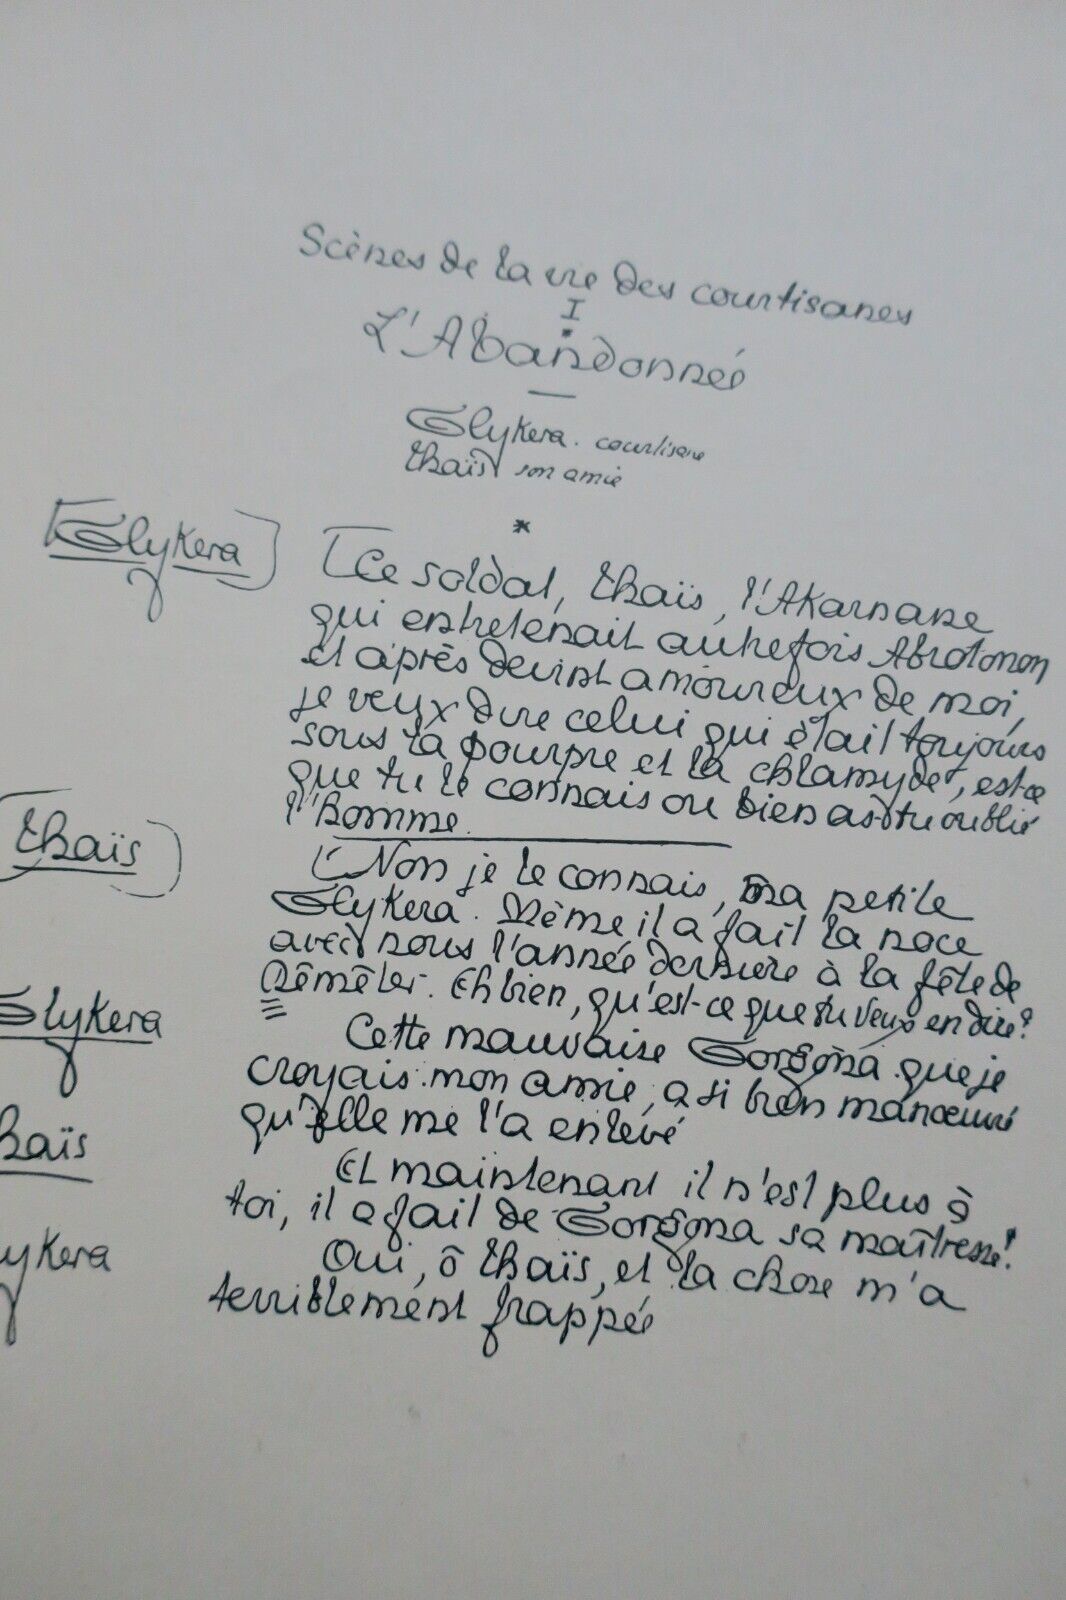 Scènes de la vie des courtisanes
I
*
L'Abandonnée
—
Glykera. courtisane
Thaïs son amie
*
[Glykera] [Ce soldat, Thaïs, l'Akarnane
qui entretenait autrefois Abrotonon
et après devint amoureux de moi,
je veux dire celui qui était toujours
sous la pourpre et la chlamyde, est-ce
que tu le connais ou bien as-tu oublié
l'homme.
(Thaïs) [Non je le connais, ma petite
Glykera. Même il a fait la noce
avec nous l'année dernière à la fête de
Dêmêter. Eh bien, qu'est-ce que tu veux en dire?
Glykera Cette mauvaise Gorgona que je
croyais mon amie, a si bien manœuvré
qu'elle me l'a enlevé
haïs Et maintenant il n'est plus à
toi, il a fait de Gorgona sa maîtresse!
ykera Oui, ô Thaïs, et la chose m'a
terriblement frappée